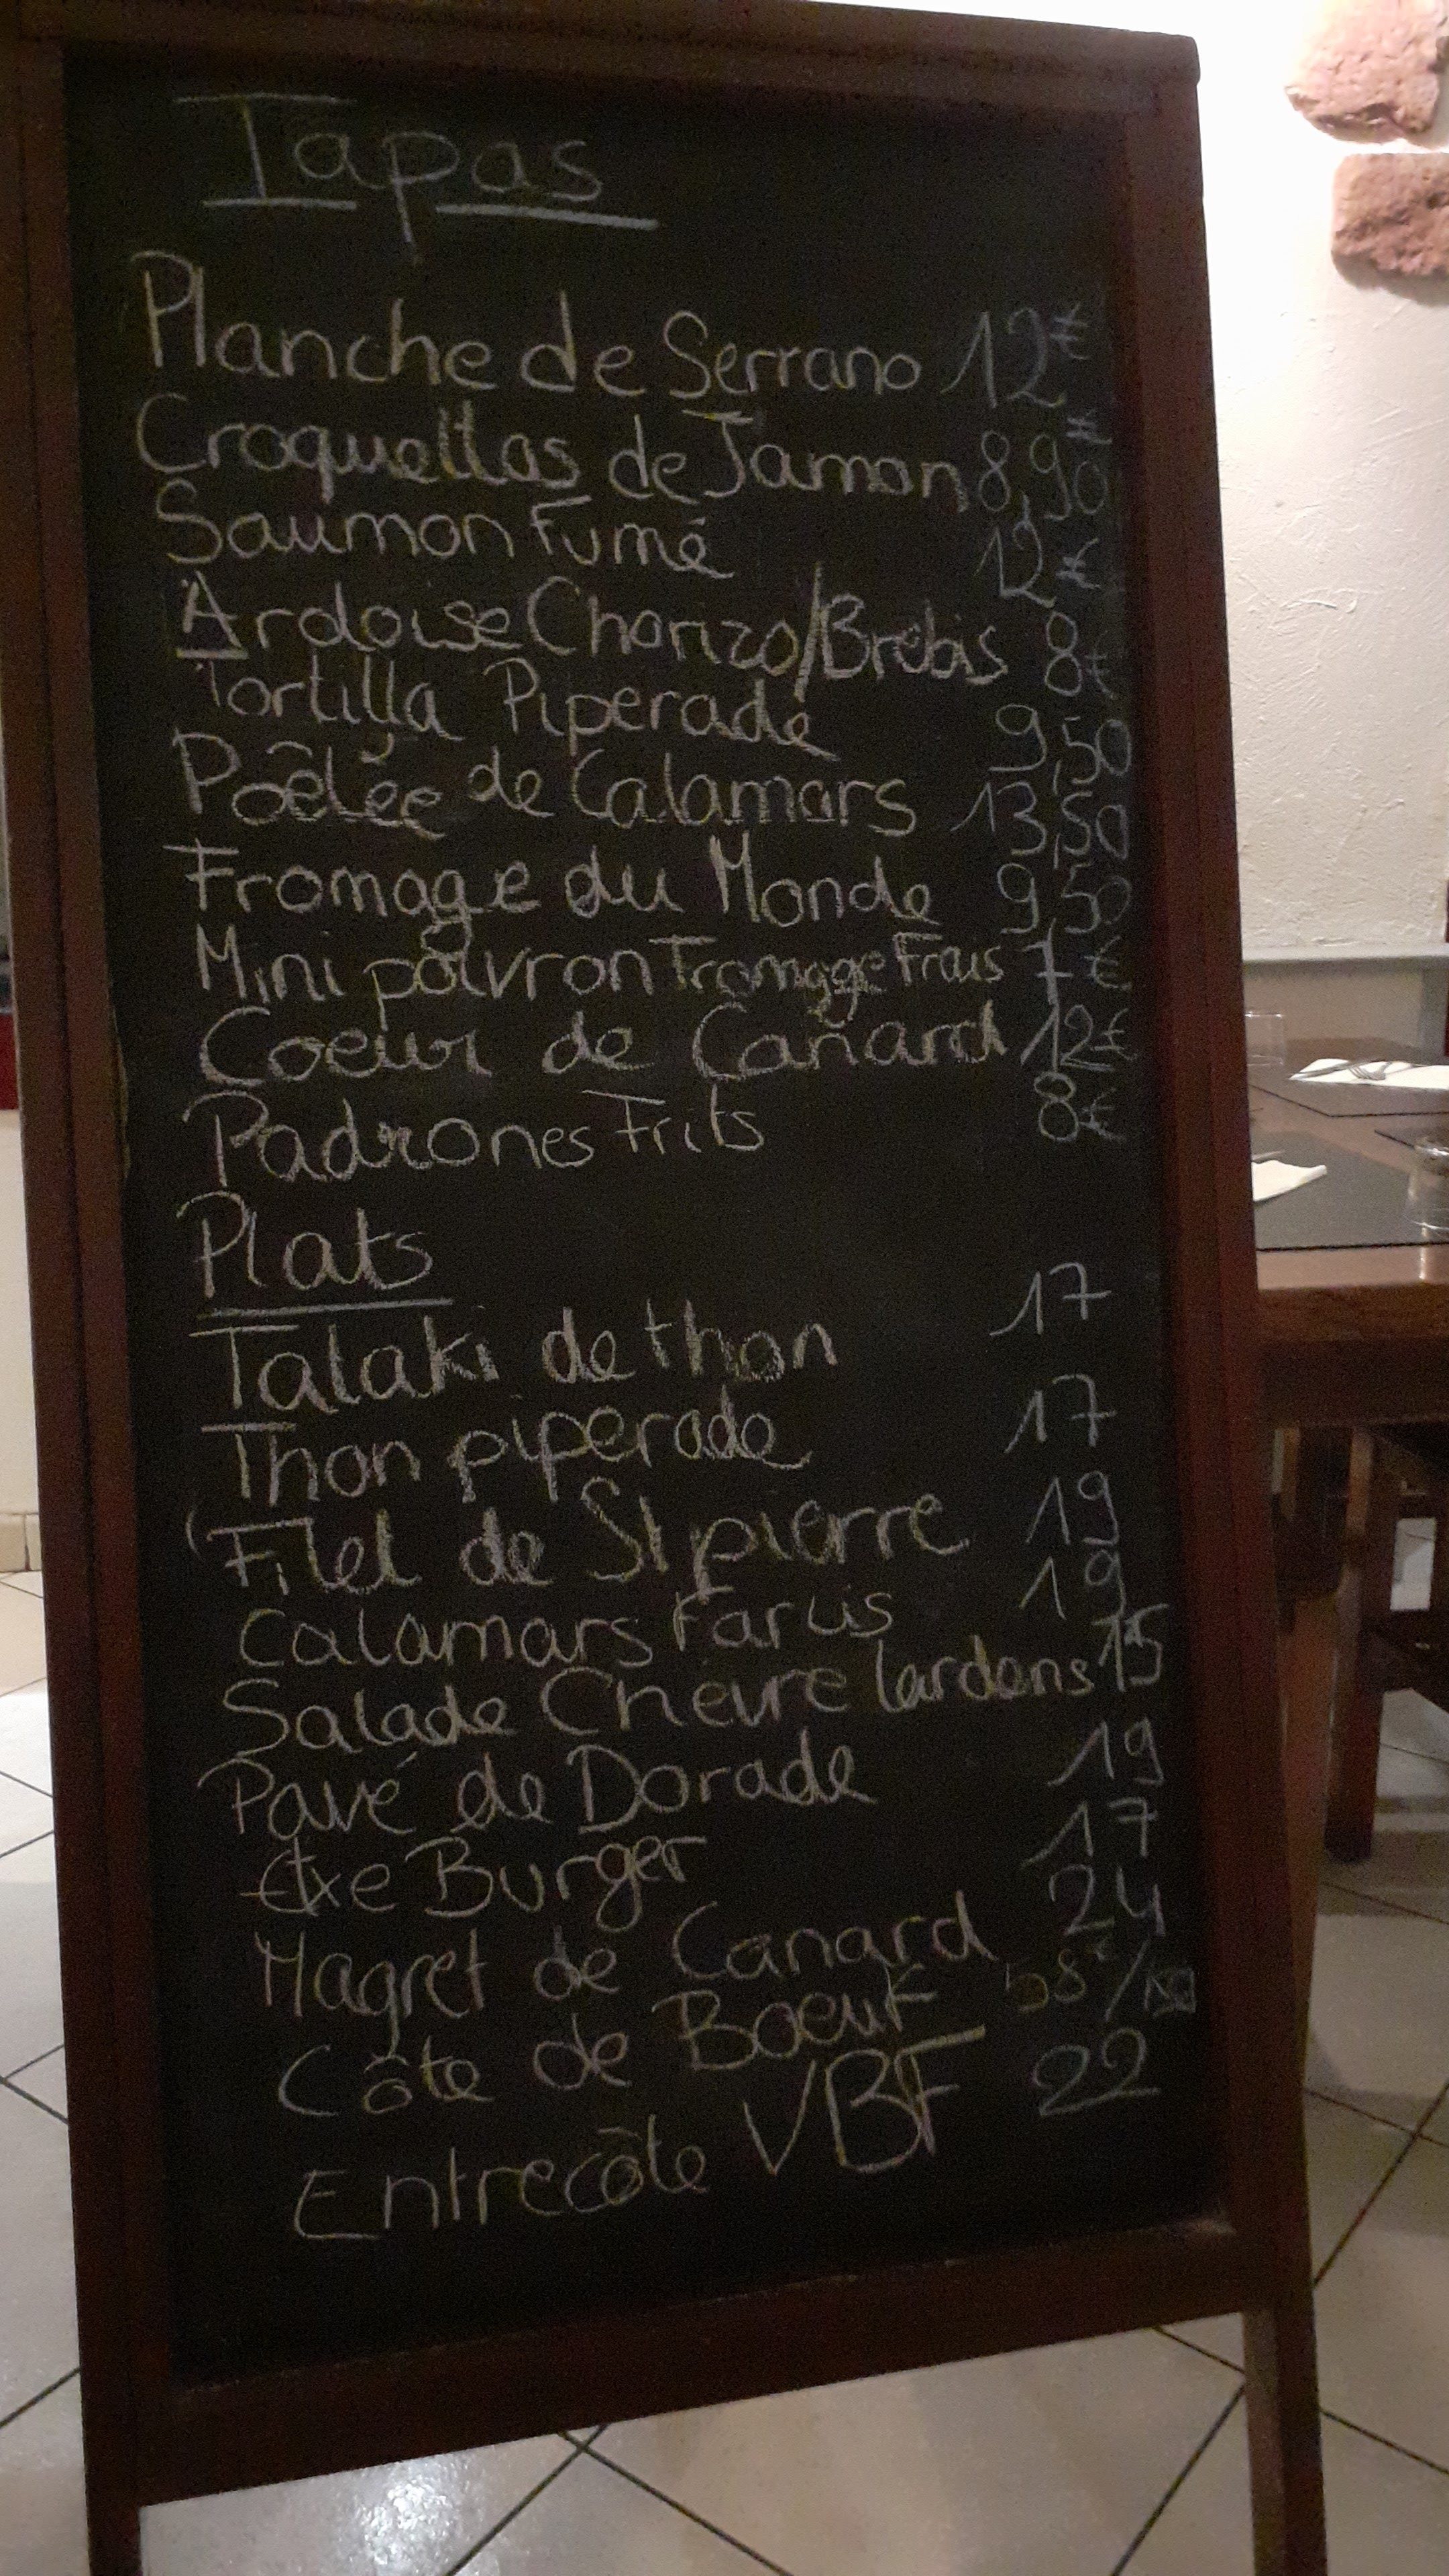 Tapas
Planche de Serrano 12€
Croquettas de Jamon 8,90€
Saumon Fumé 12€
Ardoise Chorizo/Brebis 8€
Tortilla Piperade 9,50
Poêlée de Calamars 13,50
Fromage du Monde 9,50
Mini poivron Fromage Frais 7€
Coeur de Canard 12€
Padrones Frits 8€
Plats
Talaki de thon 17
Thon piperade 17
Filet de St pierre 19
Calamars Farcis 19
Salade Chèvre lardons 15
Pavé de Dorade 19
Etxe Burger 17
Magret de Canard 24
Côte de Boeuf 58€/kg
Entrecôte VBF 22